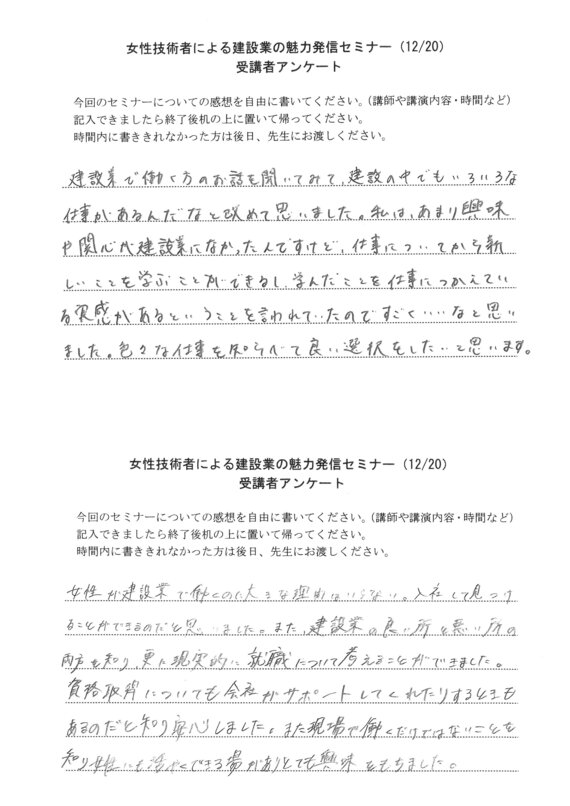 女性技術者による建設業の魅力発信セミナー（12/20）
受講者アンケート
今回のセミナーについての感想を自由に書いてください。（講師や講演内容・時間など）
記入できましたら終了後机の上に置いて帰ってください。
時間内に書ききれなかった方は後日、先生にお渡しください。
建設業で働く方のお話を聞いてみて、建設の中でもいろいろな
仕事があるんだなと改めて思いました。私は、あまり興味
や関心が建設業になかったんですけど、仕事についてから新
しいことを学ぶことができるし、学んだことを仕事につかえてい
る実感があるということを言われていたのですごくいいなと思い
ました。色々な仕事を知らべて良い選択をしたいと思います。
女性技術者による建設業の魅力発信セミナー（12/20）
受講者アンケート
今回のセミナーについての感想を自由に書いてください。（講師や講演内容・時間など）
記入できましたら終了後机の上に置いて帰ってください。
時間内に書ききれなかった方は後日、先生にお渡しください。
女性が建設業で働くのに大きな理由はいらない。入社して見つけ
ることができるのだと思いました。また、建設業の良い所と悪い所の
両方を知り、更に現実的に就職について考えることができました。
資格取得についても会社がサポートしてくれたりする
あるのだと知り安心しました。また現場で働くだけではないことを
知り女性にも活やくできる場がありとても興味をもちました。